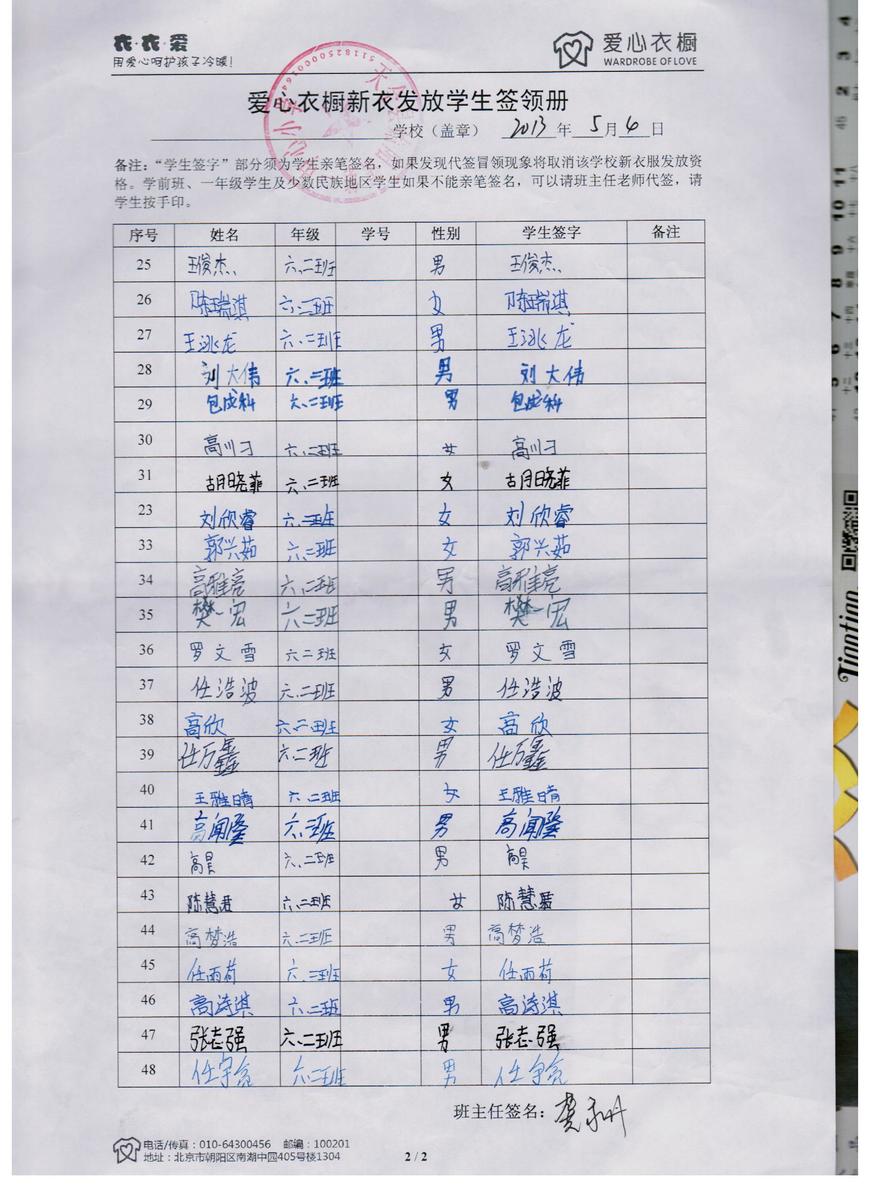 衣·衣·爱
用爱心呵护孩子冷暖!
爱心衣橱
WARDROBE OF LOVE
爱心衣橱新衣发放学生签领册
学校（盖章） 2013 年 5 月 6 日
备注：“学生签字”部分须为学生亲笔签名，如果发现代签冒领现象将取消该学校新衣服发放资
格。学前班、一年级学生及少数民族地区学生如果不能亲笔签名，可以请班主任老师代签，请
学生按手印。
序号 姓名 年级 学号 性别 学生签字 备注
25 王俊杰 六.二班 男 王俊杰
26 陈瑞淇 六.二班 女 陈瑞淇
27 王兆龙 六.二班 男 王兆龙
28 刘大伟 六.二班 男 刘大伟
29 包成科 六.二班 男 包成科
30 高川 六.二班 女 高川
31 胡晓菲 六.二班 女 胡晓菲
23 刘欣睿 六.二班 女 刘欣睿
33 郭兴茹 六.二班 女 郭兴茹
34 高雅亮 六.二班 男 高雅亮
35 樊一宏 六二班 男 樊一宏
36 罗文雪 六二班 女 罗文雪
37 任浩波 六.二班 男 任浩波
38 高欣 六二班 女 高欣
39 任万鑫 六.二班 男 任万鑫
40 王雅晴 六.二班 女 王雅晴
41 高闻 六.二班 男 高闻
42 高昊 六.二班 男 高昊
43 陈慧君 六.二班 女 陈慧君
44 高梦浩 六.二班 男 高梦浩
45 任雨荷 六.二班 女 任雨荷
46 高诗淇 六.二班 男 高诗淇
47 张志强 六.二班 男 张志强
48 任宇亮 六.二班 男 任宇亮
班主任签名：
电话/传真：010-64300456 邮编：100201
地址：北京市朝阳区南湖中园405号楼1304
2 / 2